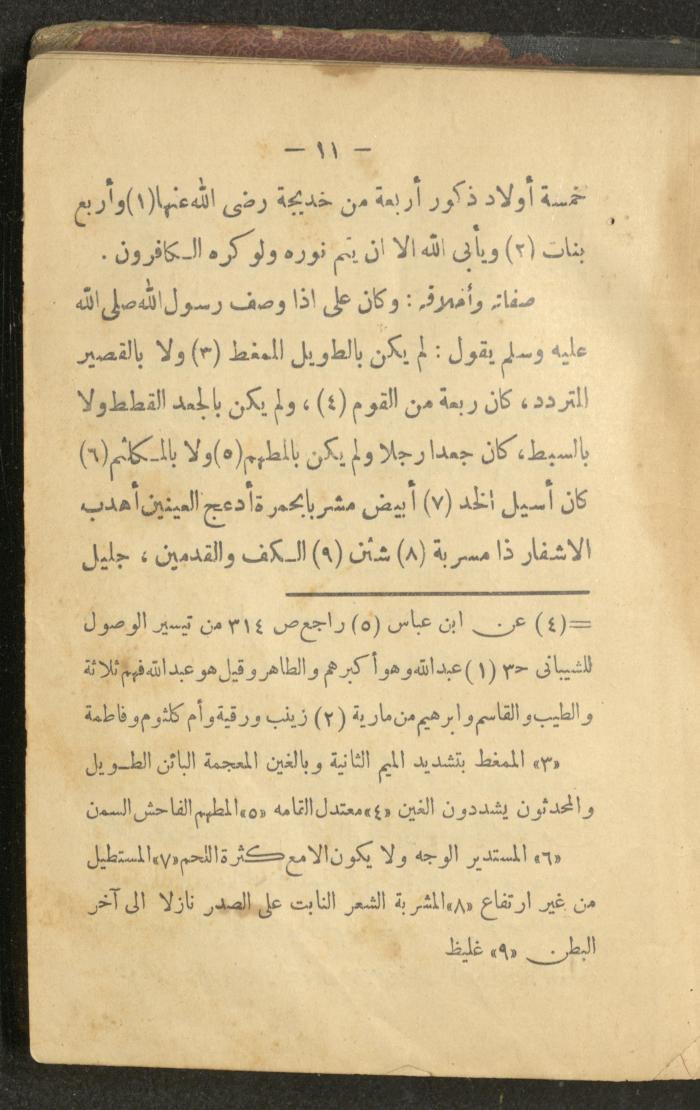 — ١١ —
خمسة أولاد ذكور أربعة من خديجة رضى الله عنها(١) وأربع
بنات (٢) ويأبى الله الا ان يتم نوره ولو كره الـكافرون .
صفاته وأخلاقه : وكان على اذا وصف رسول الله صلى الله
عليه وسلم يقول : لم يكن بالطويل الممغط (٣) ولا بالقصير
المتردد، كان ربعة من القوم (٤) ، ولم يكن بالجعد القطط ولا
بالسبط، كان جعدا رجلا ولم يكن بالمطهم(٥) ولا بالمـكلثم(٦)
كان أسيل الخد (٧) أبيض مشربا بحمرة أدعج العينين أهدب
الاشفار ذا مسربة (٨) شثن (٩) الـكف والقدمين ، جليل
=(٤) عن ابن عباس (٥) راجع ص ٣١٤ من تيسير الوصول
للشيبانى حـ٣ (١) عبدالله وهو أكبرهم والطاهر وقيل هو عبدالله فهم ثلاثة
والطيب والقاسم وابرهيم من مارية (٢) زينب ورقية وأم كلثوم وفاطمة
«٣» الممغط بتشديد الميم الثانية وبالغين المعجمة البائن الطـويل
والمحدثون يشددون الغين «٤» معتدل القامه «٥» المطهم الفاحش السمن
«٦» المستدير الوجه ولا يكون الا مع كثرة اللحم «٧» المستطيل
من غير ارتفاع «٨» المشربة الشعر النابت على الصدر نازلا الى آخر
البطن «٩» غليظ